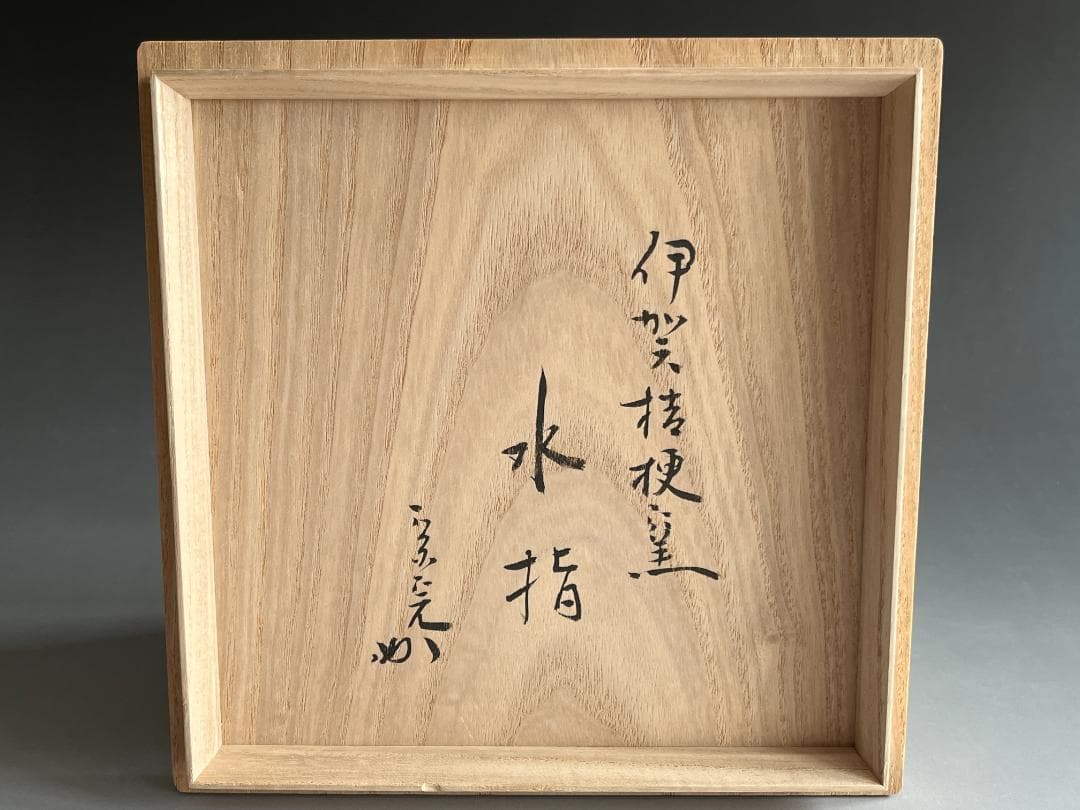 伊賀桔梗窯
水指